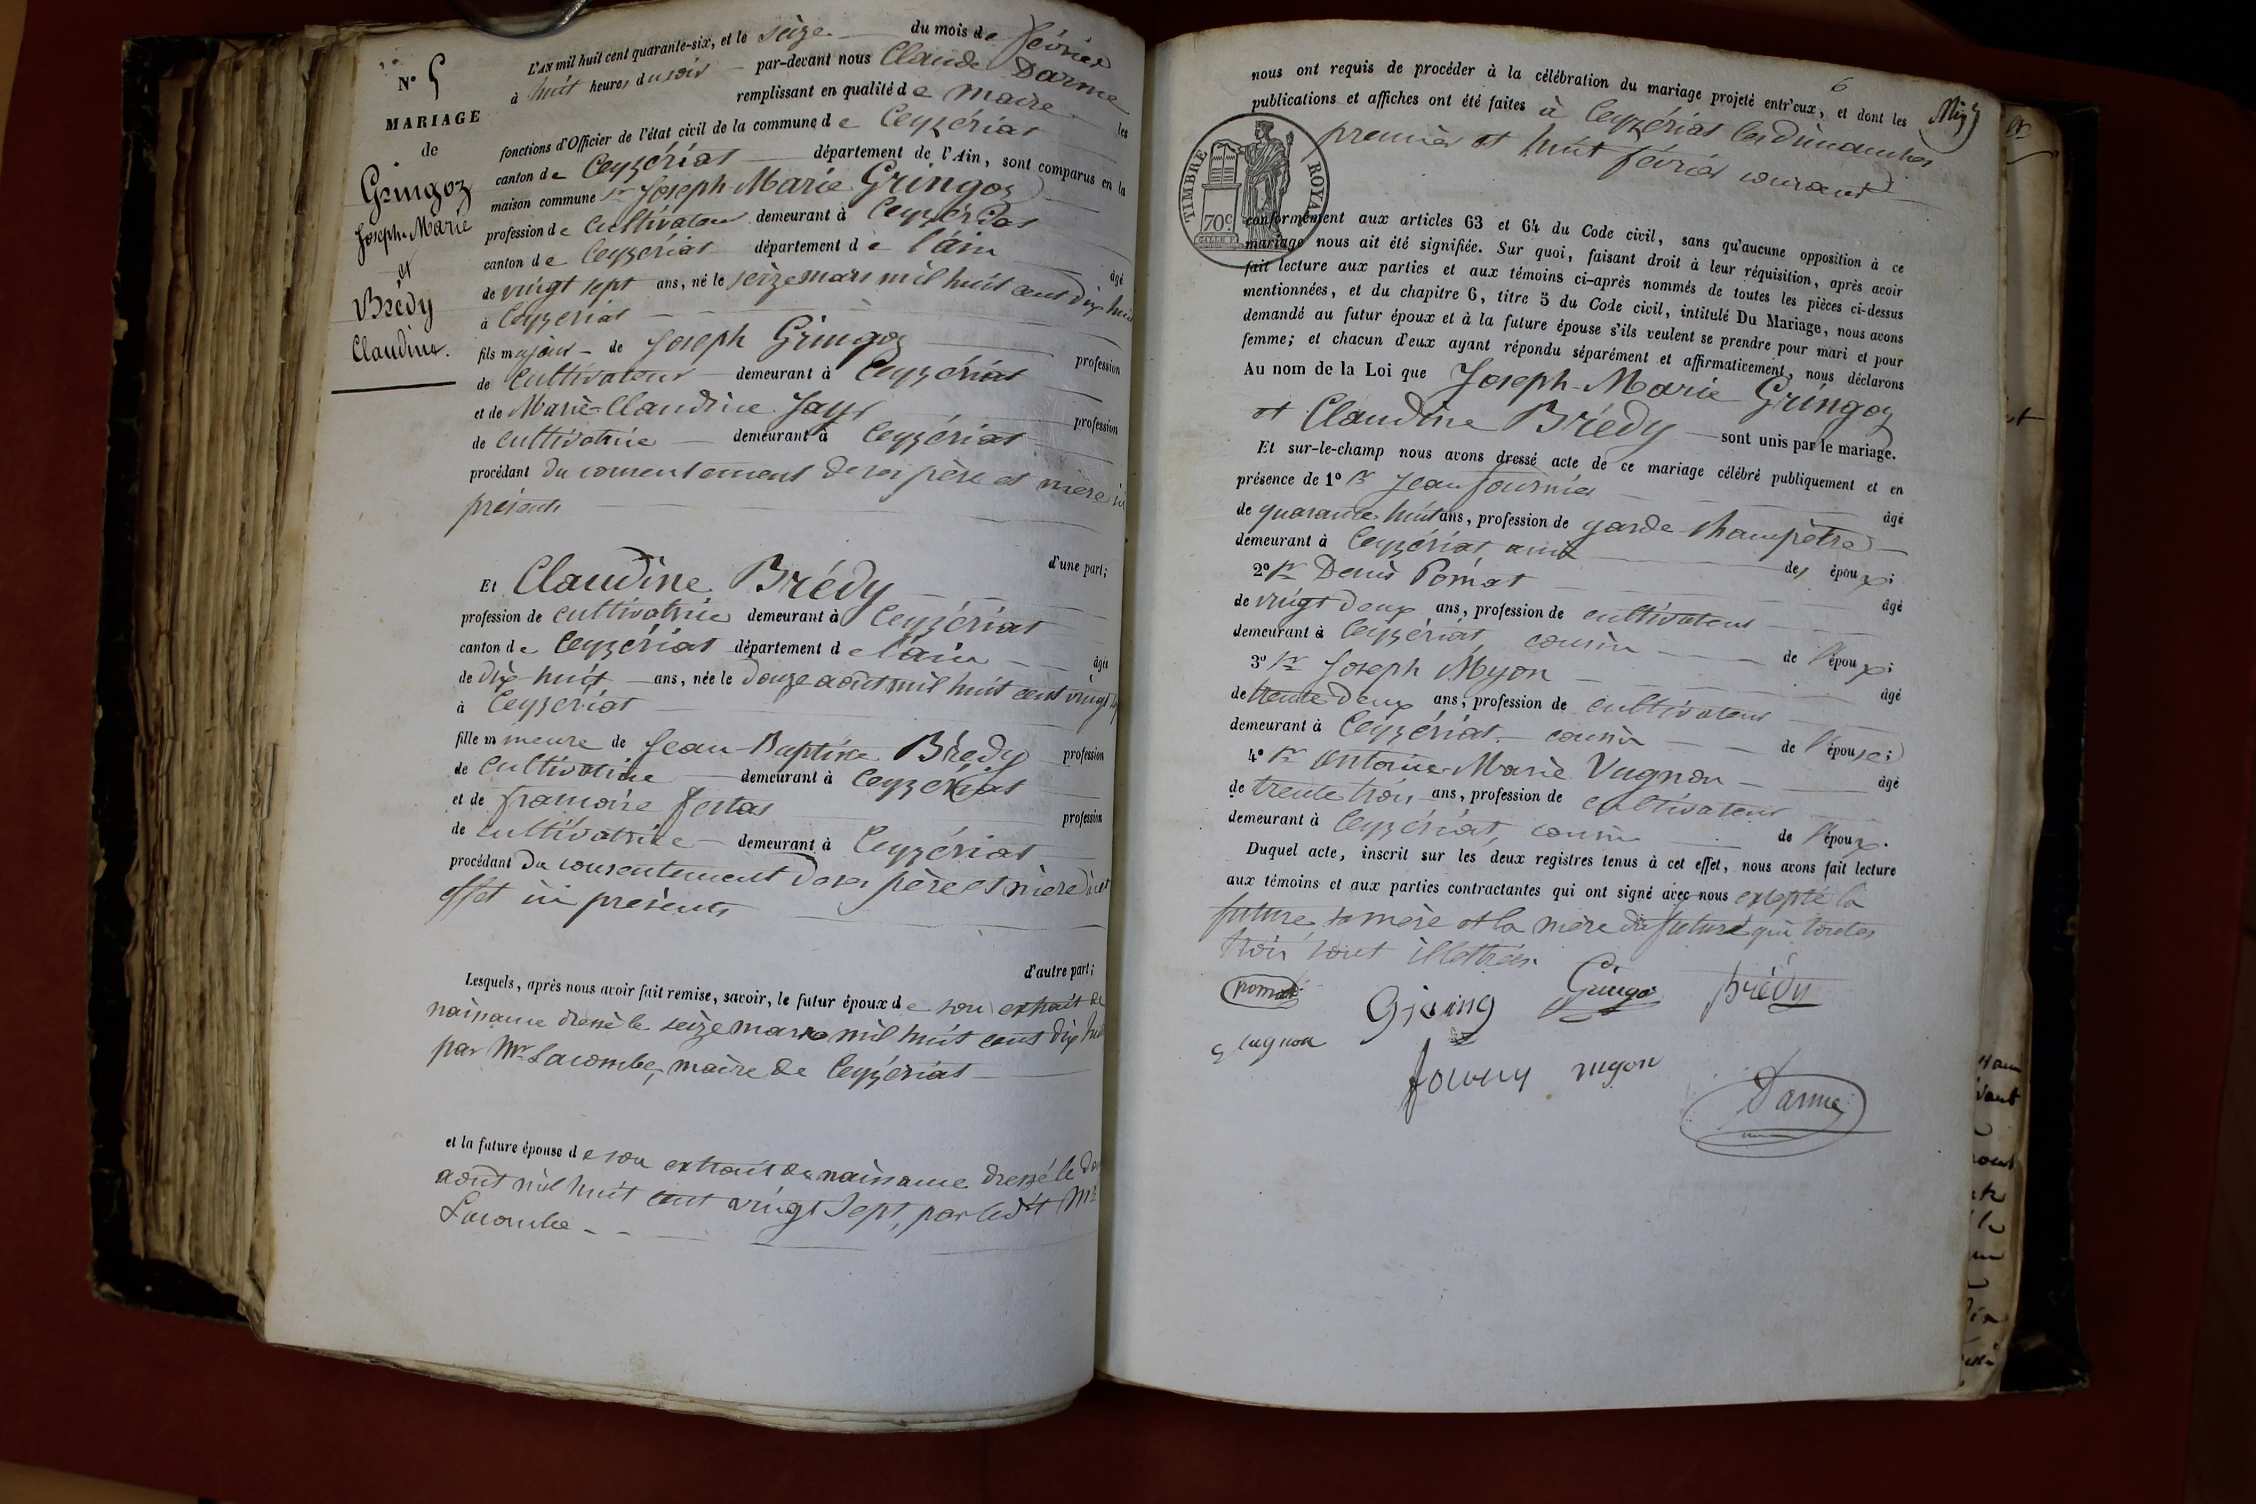 N° 5
MARIAGE
de
Gringoz
Joseph-Marie
et
Brédy
Claudine.
L'AN mil huit cent quarante-six, et le seize du mois de février
à huit heures du soir par-devant nous Claude Darme
remplissant en qualité de maire les
fonctions d'Officier de l'état civil de la commune de Ceyzériat
canton de Ceyzériat département de l'Ain, sont comparus en la
maison commune Sr Joseph-Marie Gringoz
profession de cultivateur demeurant à Ceyzériat
canton de Ceyzériat département de l'ain âgé
de vingt sept ans, né le seize mars mil huit cent dix huit
à Ceyzériat
fils majeur de Joseph Gringoz profession
de cultivateur demeurant à Ceyzériat
et de Marie-Claudine Jayr profession
de cultivatrice demeurant à Ceyzériat
procédant du consentement de ses père et mère ici
présents
d'une part;
Et Claudine Brédy
profession de cultivatrice demeurant à Ceyzériat
canton de Ceyzériat département de l'ain âgée
de dix-huit ans, née le douze aout mil huit cent vingt
à Ceyzériat
fille mineure de Jean-Baptiste Brédy profession
de cultivateur demeurant à Ceyzériat
et de françoise profession
de cultivatrice demeurant à Ceyzériat
procédant du consentement de ses père et mère à cet
effet ici présents
d'autre part;
Lesquels, après nous avoir fait remise, savoir, le futur époux de son extrait de
naissance dressé le seize mars mil huit cent dix huit
par Mr Lacombe, maire de Ceyzériat
et la future épouse de son extrait de naissance dressé le
aout mil huit cent vingt sept, par ledit Mr
Lacombe
6
nous ont requis de procéder à la célébration du mariage projeté entr'eux, et dont les
publications et affiches ont été faites à Ceyzériat les dimanches
premier et huit février courant
TIMBRE ROYAL
70c
conformément aux articles 63 et 64 du Code civil, sans qu'aucune opposition à ce
mariage nous ait été signifiée. Sur quoi, faisant droit à leur réquisition, après avoir
fait lecture aux parties et aux témoins ci-après nommés de toutes les pièces ci-dessus
mentionnées, et du chapitre 6, titre 5 du Code civil, intitulé Du Mariage, nous avons
demandé au futur époux et à la future épouse s'ils veulent se prendre pour mari et pour
femme; et chacun d'eux ayant répondu séparément et affirmativement, nous déclarons
Au nom de la Loi que Joseph-Marie Gringoz
et Claudine Brédy sont unis par le mariage.
Et sur-le-champ nous avons dressé acte de ce mariage célébré publiquement et en
présence de 1° Sr Jean fournier âgé
de quarante-huit ans, profession de garde champêtre
demeurant à Ceyzériat, ami des époux;
2° Sr Denis Pomat âgé
de vingt deux ans, profession de cultivateur
demeurant à Ceyzériat, cousin de l'époux;
3° Sr Joseph Myon âgé
de trente deux ans, profession de cultivateur
demeurant à Ceyzériat, cousin de l'épouse;
4° Sr Antoine-Marie Vugnon âgé
de trente trois ans, profession de cultivateur
demeurant à Ceyzériat, cousin de l'époux.
Duquel acte, inscrit sur les deux registres tenus à cet effet, nous avons fait lecture
aux témoins et aux parties contractantes qui ont signé avec nous excepté la
future, sa mère et la mère du futur qui toutes
trois sont illettrées.
pomat
Gringo
brédy
vugnon
Darme